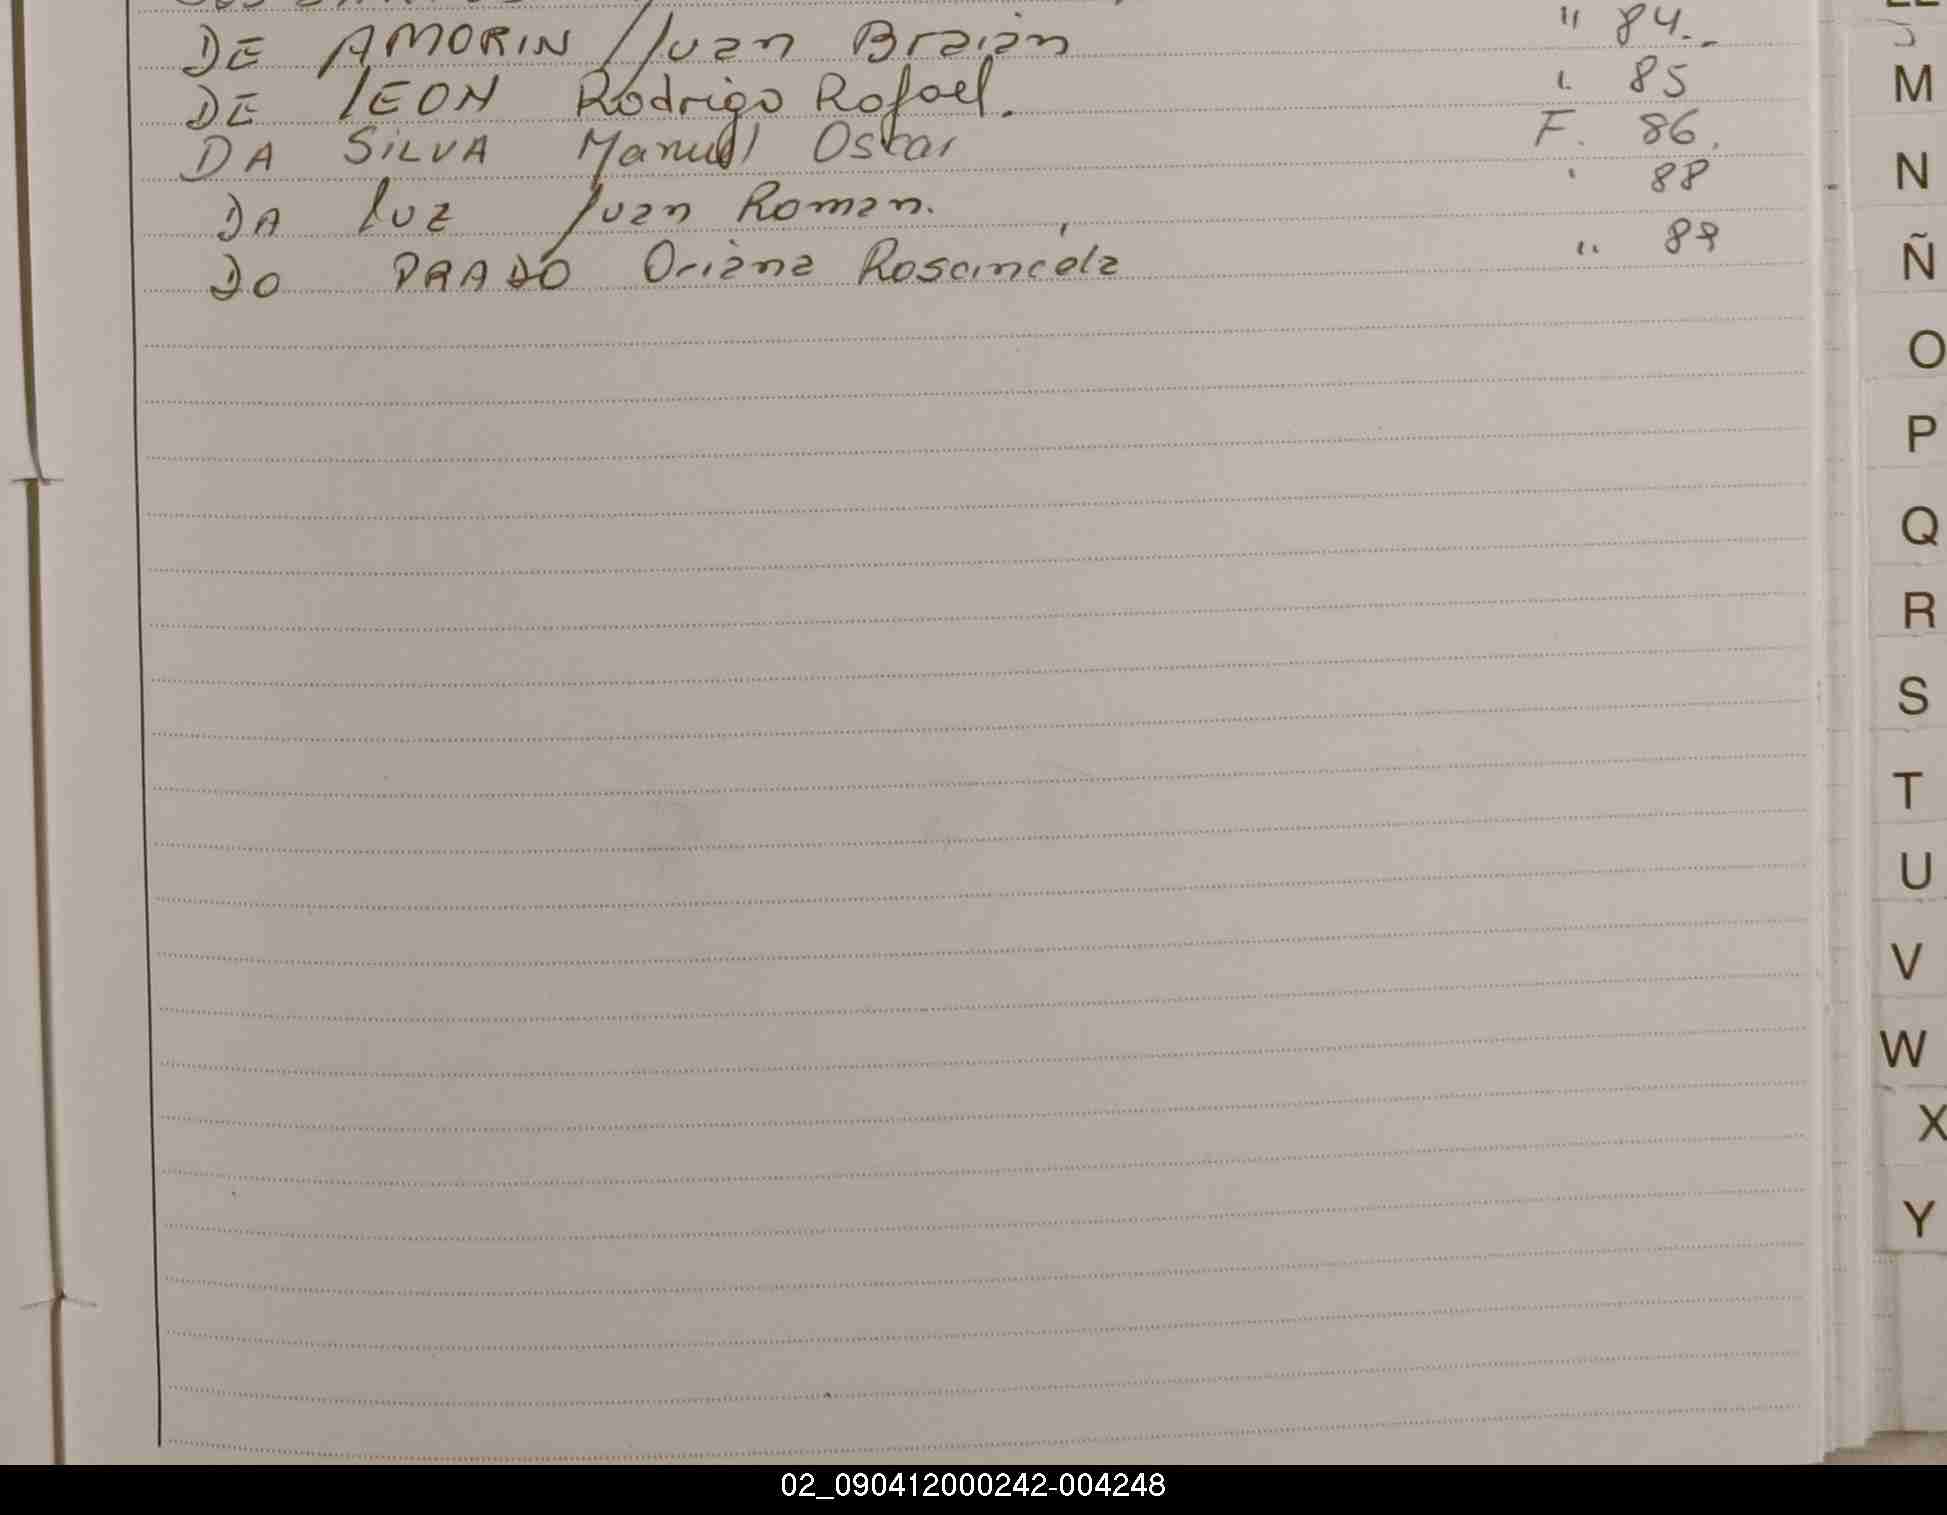 DE AMORIN Juan Braian " 84.-
DE LEON Rodrigo Rafael. " 85
DA SILVA Manuel Oscar F. 86.
DA LUZ Juan Roman. " 88
DO PRADO Oriana Rosangela " 89
M
N
Ñ
O
P
Q
R
S
T
U
V
W
X
Y
02_090412000242-004248